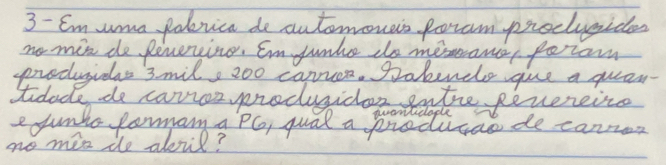 3- Em uma fabrica de automoveis foram produzidos
no mês de fevereiro. Em junho do mesmo ano, foram
produzidas 3 mil e 200 carros. Sabendo que a quan-
tidade de carros produzidos entre fevereiro
e junho formam a PG, qual a quantidade produção de carros
no mês de abril?